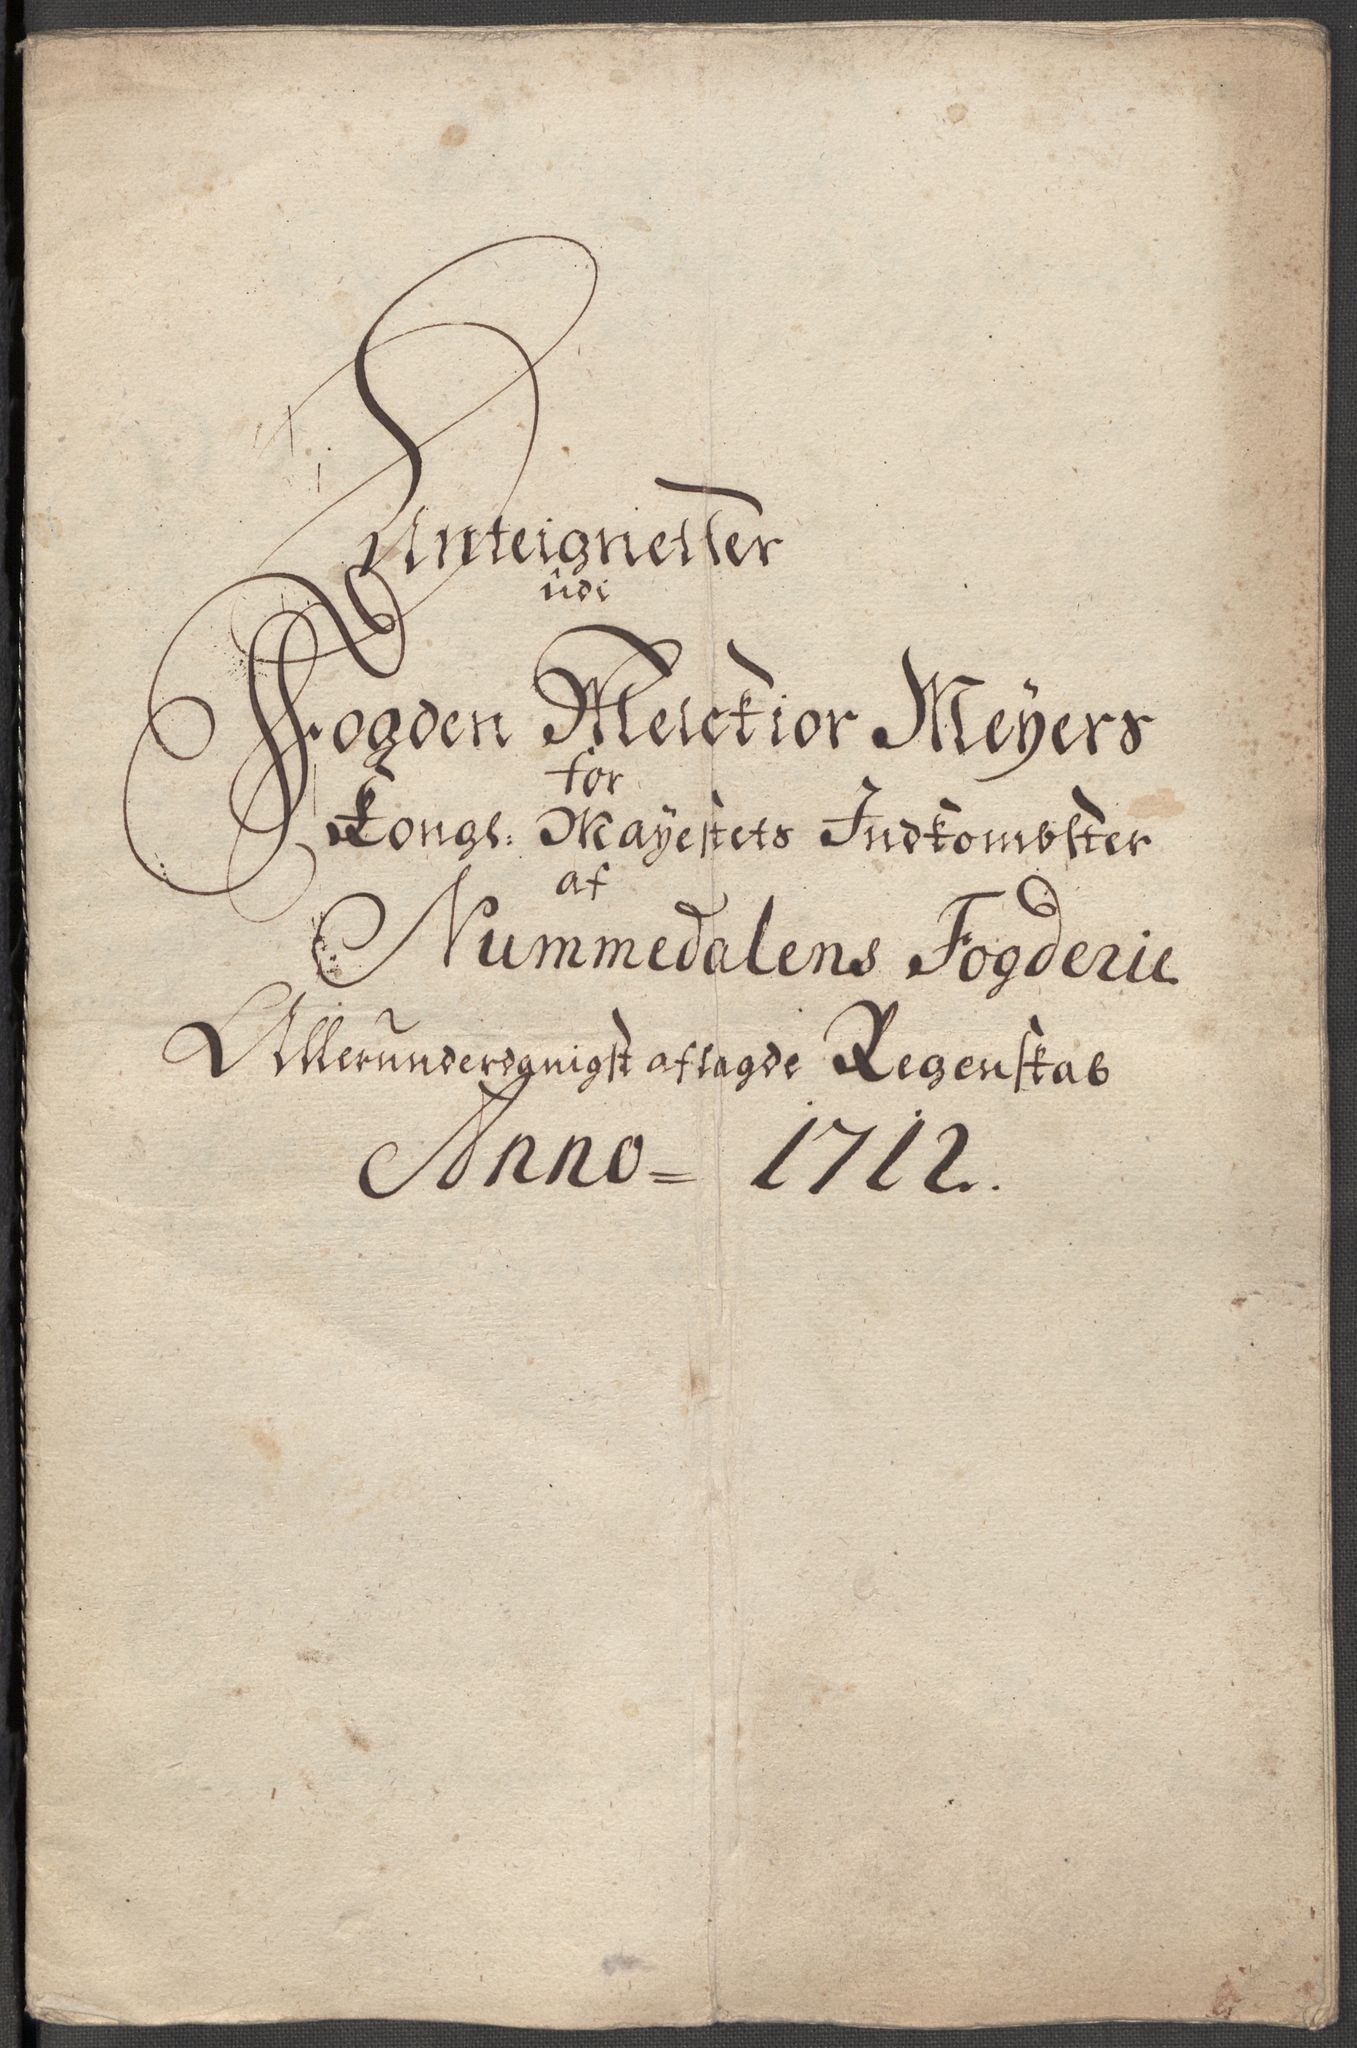 Anteignelser
udi
Fogden Melckior Meyers
for
Kongl: Mayestets Indkombster
af
Nummedalens Fogderie
Allerunderdgnigst aflagde Regenskab
Anno= 1712.